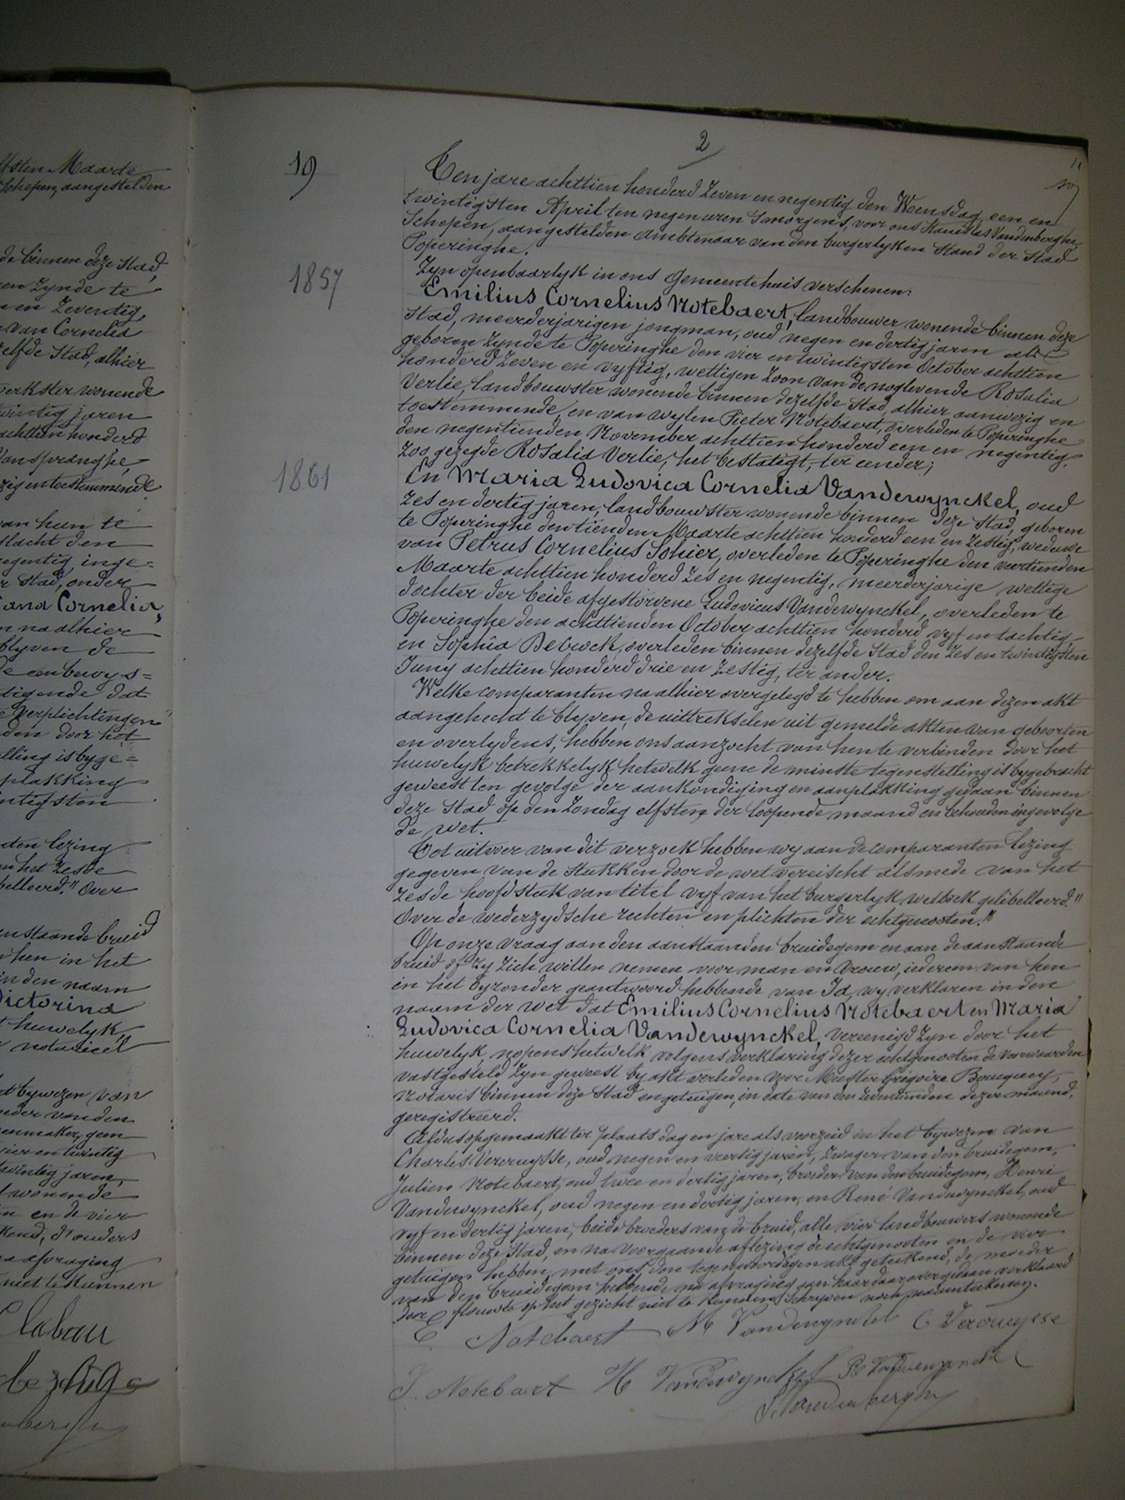 2
19
Ten jare achttien honderd zeven en negentig den Woensdag een en
twintigsten April ten negen uren 's morgens, voor ons Stanislas Vandenberghe
Schepen, aangestelden Ambtenaar van den burgerlyken Stand der Stad
Poperinghe.
Zyn openbaarlyk in ons Gemeentehuis verschenen:
1857
Emilius Cornelius Notebaert, landbouwer wonende binnen deze
Stad, meerderjarigen jongman, oud negen en dertig jaren als
geboren zynde te Poperinghe den vier en twintigsten October achttien
honderd zeven en vyftig, wettigen zoon van de noglevende Rosalia
Verlie, landbouwster wonende binnen dezelfde Stad, alhier aanwezig en
toestemmende, en van wylen Pieter Notebaert, overleden te Poperinghe
den negentienden November achttien honderd een en negentig,
zoo gezegde Rosalia Verlie, het bestatigt, ter eender;
1861
En Maria Ludovica Cornelia Vandewynckel, oud
zes en dertig jaren, landbouwster wonende binnen deze Stad, geboren
te Poperinghe den tienden Maarte achttien honderd een en zestig, weduwe
van Petrus Cornelius Sohier, overleden te Poperinghe den veertienden
Maarte achttien honderd zes en negentig, meerderjarige wettige
dochter der beide afgestorvene Ludovicus Vandewynckel, overleden te
Poperinghe den achttienden October achttien honderd vyf en tachtig
en Sophia Debrock, overleden binnen dezelfde Stad den zes en twintigsten
Juny achttien honderd drie en zestig, ter ander.
Welke comparanten na alhier overgelegd te hebben om aan dezen akt
aangehecht te blyven, de uittrekselen uit gemelde akten van geboorten
en overlydens, hebben ons aanzocht van hen te verbinden door het
huwelyk betrekkelyk hetwelk geene de minste tegenstelling is bygebracht
geweest ten gevolge der aankondiging en aanplakking gedaan binnen
deze Stad op den Zondag elfsten der loopende maand en behouden ingevolge
de wet.
Tot uitvoer van dit verzoek hebben wy aan de comparanten lezing
gegeven van de stukken door de wet vereischt alsmede van het
zesde hoofdstuk van titel vyf van het burgerlyk wetboek gelibelleerd "
Over de wederzydsche rechten en plichten der echtgenooten."
Op onze vraag aan den aanstaanden bruidegom en aan de aanstaande
bruid of zy zich willen nemen voor man en vrouw, iedereen van hen
in het byzonder geantwoord hebbende van Ja, wy verklaren in den
naam der wet dat Emilius Cornelius Notebaert en Maria
Ludovica Cornelia Vandewynckel, vereenigd zyn door het
huwelyk, nopens hetwelk volgens verklaring dezer echtgenooten de voorwaarden
vastgesteld zyn geweest by akt verleden voor Meester Gregoire
Notaris binnen deze Stad en getuigen, in date van den dezer maand,
geregistreerd.
Aldus opgemaakt ter plaats dag en jare als voorzeid in het bywezen van
Charles Vereruysse, oud negen en veertig jaren, zwager van den bruidegom,
Julien Notebaert, oud twee en dertig jaren, broeder van den bruidegom, Henri
Vandewynckel, oud negen en dertig jaren, en René Vandewynckel, oud
vyf en dertig jaren, beide broeders van de bruid, alle vier landbouwers wonende
binnen deze Stad, en na voorgaande aflezing de echtgenooten en de vier
getuigen hebben, met ons den tegenwoordigen akt geteekend, de moeder
van den bruidegom hebbende na afvraging aan haar daarover gedaan verklaard
door flauwte op het gezicht niet te kunnen schryven noch naamteekenen.
E. Notebaert M Vandewynckel C Vereruysse
J. Notebaert H Vandewynckel R Vandewynckel
S. Vandenberghe